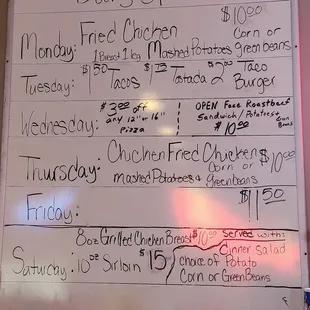 $10.00
Monday: Fried Chicken Corn or
1 Breast 1 leg Mashed Potatoes green beans
Tuesday: $1.50 Tacos $1.75 Tostada $2.00 Taco Burger
Wednesday: $2.00 off any 12" or 16" Pizza
OPEN Face Roastbeef
Sandwich / Potatoes +
$10.00 Green Beans
Thursday: Chicken Fried Chicken $10.00
mashed Potatoes + Corn or Greenbeans
Friday: $11.50
8oz Grilled Chicken Breast $10.00 Served with:
Dinner Salad
Saturday: 10oz Sirloin $15 choice of Potato
Corn or Green Beans